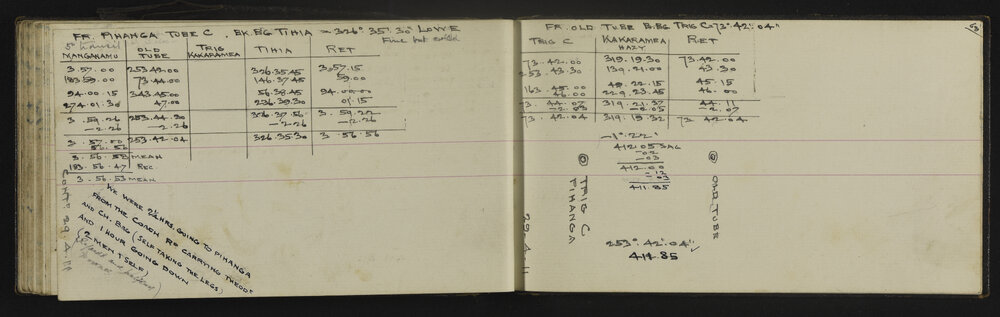 FR. PIHANGA TUBE C, BK. BG TIHIA = 326° 35' 30" LOWE
Fine but cold
OLD TUBE
TRIG KAKARAMEA
TIHIA
RET
3.57.00 253.42.00 326.35.45 3.57.15
183.59.00 73.44.00 146.37.45 59.00
94.00.15 343.45.00 56.38.45 94.00.00
274.01.30 47.00 236.39.30 01.15
3.59.26 253.44.30 326.37.56 3.59.22
-2.26 -2.26 -2.26 -2.26
3.57.00 253.42.04 326.35.30 3.56.56
3.56.59 MEAN
183.56.47 REC
3.56.53 MEAN
CONTD 29.4.11
WE WERE 2¼ HRS. GOING TO PIHANGA
FROM THE COACH RD CARRYING THEOD:
AND CH. BAG (SELF TAKING THE LEGS)
AND 1 HOUR GOING DOWN
(2 MEN & SELF)
FR. OLD TUBE B.BG TRIG C = 73°.42'.04"
TRIG C
KAKARAMEA
HAZY
RET
73.42.00 319.19.30 73.42.00
253.43.30 139.21.00 43.30
163.45.00 49.22.15 45.15
46.00 229.23.45 46.00
73.44.07 319.21.37 44.11
-2.03 -2.05 -2.07
73.42.04 319.19.32 73.42.04
-1°.22'
412.05 SAG
-.02
-.03
412.00
-.12
.03
411.85
TRIG C. PIHANGA
OLD TUBE
29.4.11
253°.42'.04"
411.85